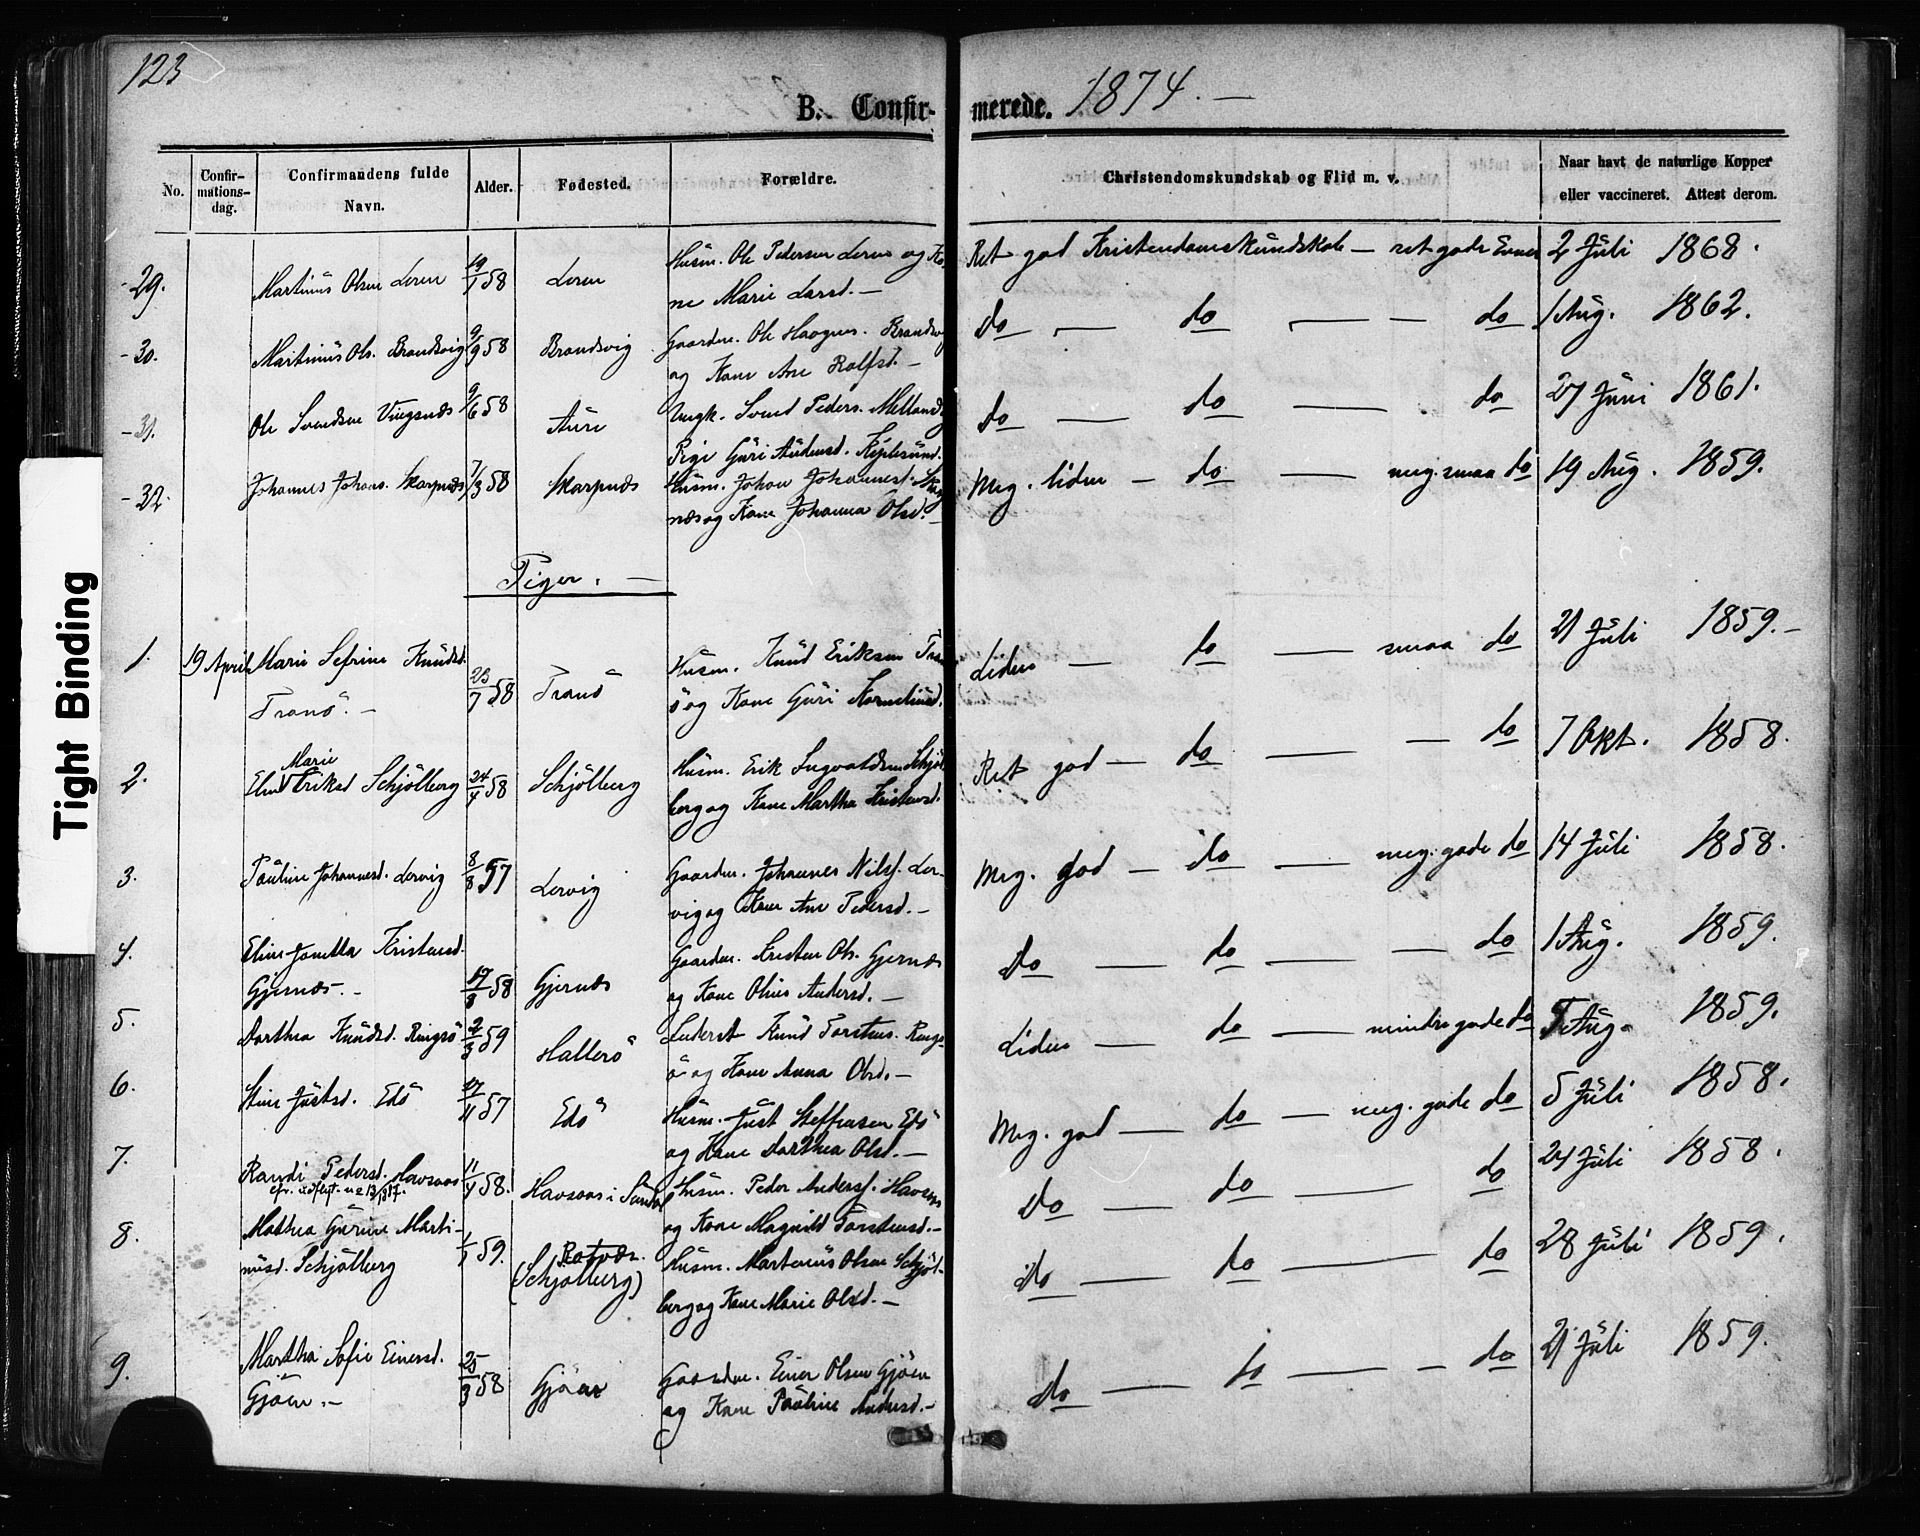 123
B. Confirmerede. 1874. —
No. Confirmationsdag. Confirmandens fulde Navn. Alder. Fødested. Forældre. Christendomskundskab og Flid m. v. Naar havt de naturlige Kopper eller vaccineret. Attest derom.
29. Martinus Olsen Leren 19/1 58 Leren Husm. Ole Pedersen Leren og Ko-
ne Marie Larsd. — Ret god Kristendomskundskab — ret gode Evner 2 Juli 1868.
30. Martinus Ols. Brandsvig 9/9 58 Brandsvig Gaardm. Ole Haagens. Brandsvig
og Kone Ane Rolfsd. — do — do — — do 1 Aug. 1862.
31. Ole Svendsen Vingsnæs 9/6 58 Aure Ungk. Svend Peders. Melland
Pige Guri Audensd. do — do — do 27 Juni 1861.
32. Johannes Johans. Skarpnæs 7/3 58 Skarpnæs Husm. Johan Johannesl. Skarp
næs og Kone Johanna Olsd. — Meg. liden — do — meg. smaa do 19 Aug. 1859.
Piger. —
1. 19 April Marie Sefrine Knudsd.
Tranö. — 23/7 58 Tranö Husm. Knud Eriksen Tran
ö og Kone Guri Korneliusd. Liden — do — smaa do 21 Juli 1859. —
2. Eline Marie Eriksd Schjölberg 24/4 58 Schjölberg Husm. Erik Ingvaldsen Schjöl
berg og Kone Martha Kristensd. Ret god — do — — do 7 Okt. 1858.
3. Pauline Johannesd. Lervig 8/8 57 Lervig Gaardm. Johannes Nilsf. Ler-
vig og Kone Ane Pedersd. — Meg. god — do — meg. gode do 14 Juli 1858.
4. Eline Janetta Kristensd.
Gjernæs. — 17/8 58 Gjernæs Gaardm. Kristen Ols. Gjernæs
og Kone Oline Andersd. — do — do — — do 1 Aug. 1859.
5. Dorthea Knudsd. Ringsö 2/3 59 Hallerö Inderst Knud Torstens. Rings-
ö og Kone Anna Olsd. — Liden — do — mindre gode do Aug. 1859.
6. Stine Justsd. Edö 17/11 57 Edö Husm. Just Steffensen Edö
og Kone Dorthea Olsd. — Meg. god — do — meg. gode do 5 Juli 1858.
7. Randi Pedersd. Havsaas
cfr. udflyt. 11/4 58. Havsaas i Sundet Husm. Peder Andersf. Havsaas
og Kone Magnild Torstensd. — do — do — do 24 Juli 1858.
8. Mathea Gurine Marti-
nusd. Schjölberg 1/1 59. (Schjölberg) Husm. Martinus Olsen Schjöl-
berg og Kone Marie Olsd. — do — do — do 28 Juli 1859.
9. Martha Sofie Einersd.
Gjöen. — 25/3 58 Gjöen Gaardm. Einer Olsen Gjöen
og Kone Pauline Andersd. — do — do — — do 21 Juli 1859.
Tight Binding